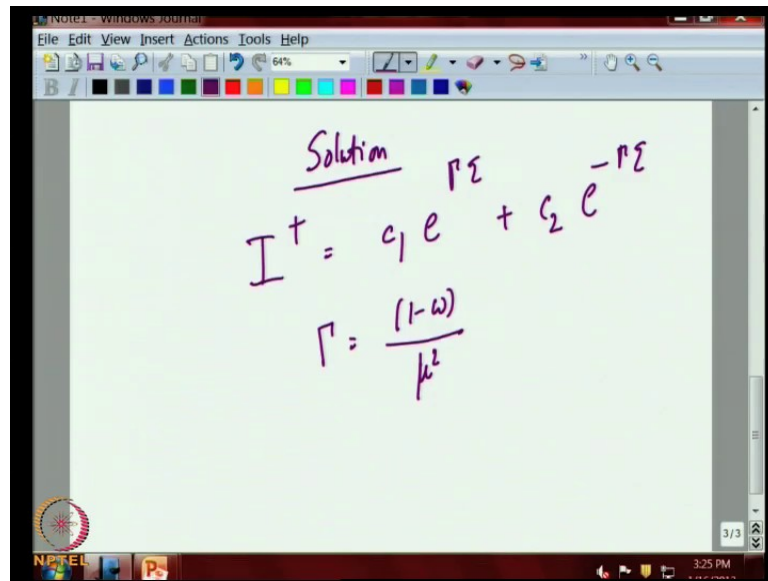 Note1 - Windows Journal
File Edit View Insert Actions Tools Help
64%
B I
Solution
I⁺ = c₁ e^{Γξ} + c₂ e^{-Γξ}
Γ = (1-ω)/μ²
3/3
NPTEL
3:25 PM